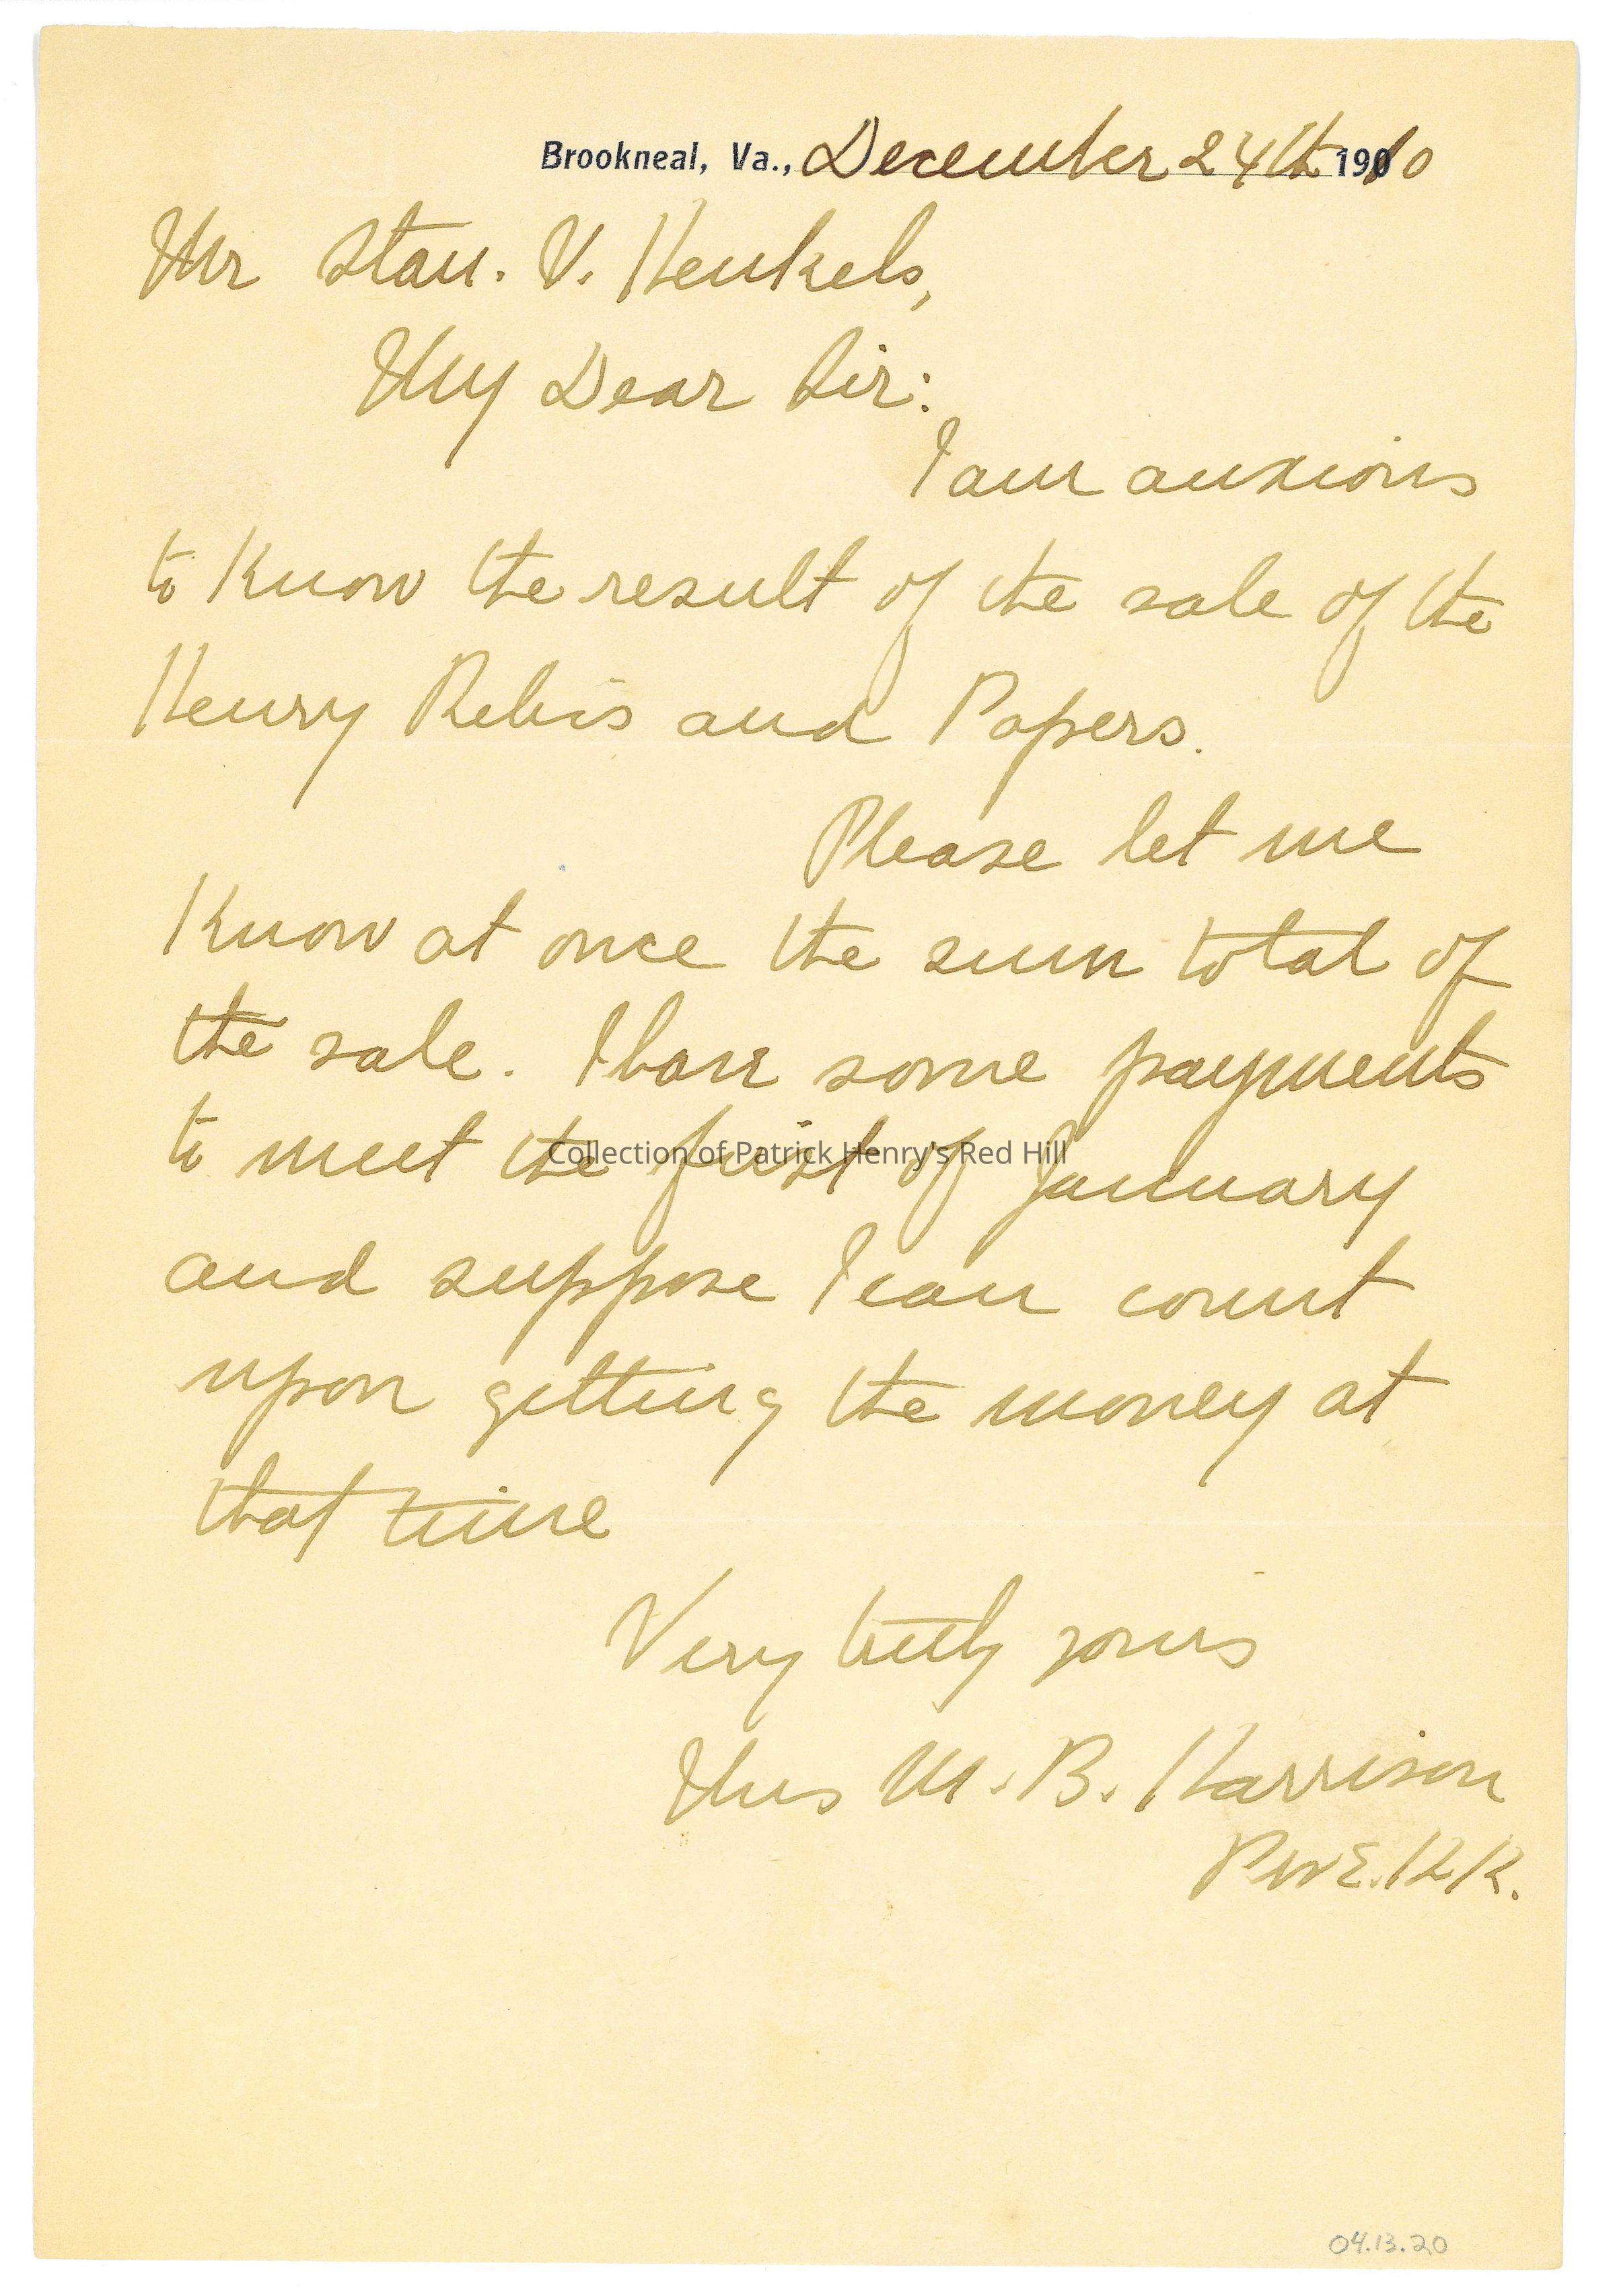 Brookneal, Va., December 24th 1910
Mr Stan. V. Henkels,
My Dear Sir:
I am anxious
to Know the result of the sale of the
Henry Relics and Papers.
Please let me
Know at once the sum total of
the sale. I have some payments
to meet the first of January
Collection of Patrick Henry's Red Hill
and suppose I can count
upon getting the money at
that time
Very truly yours
Mrs M. B. Harrison
Per E. H. H.
04.13.20